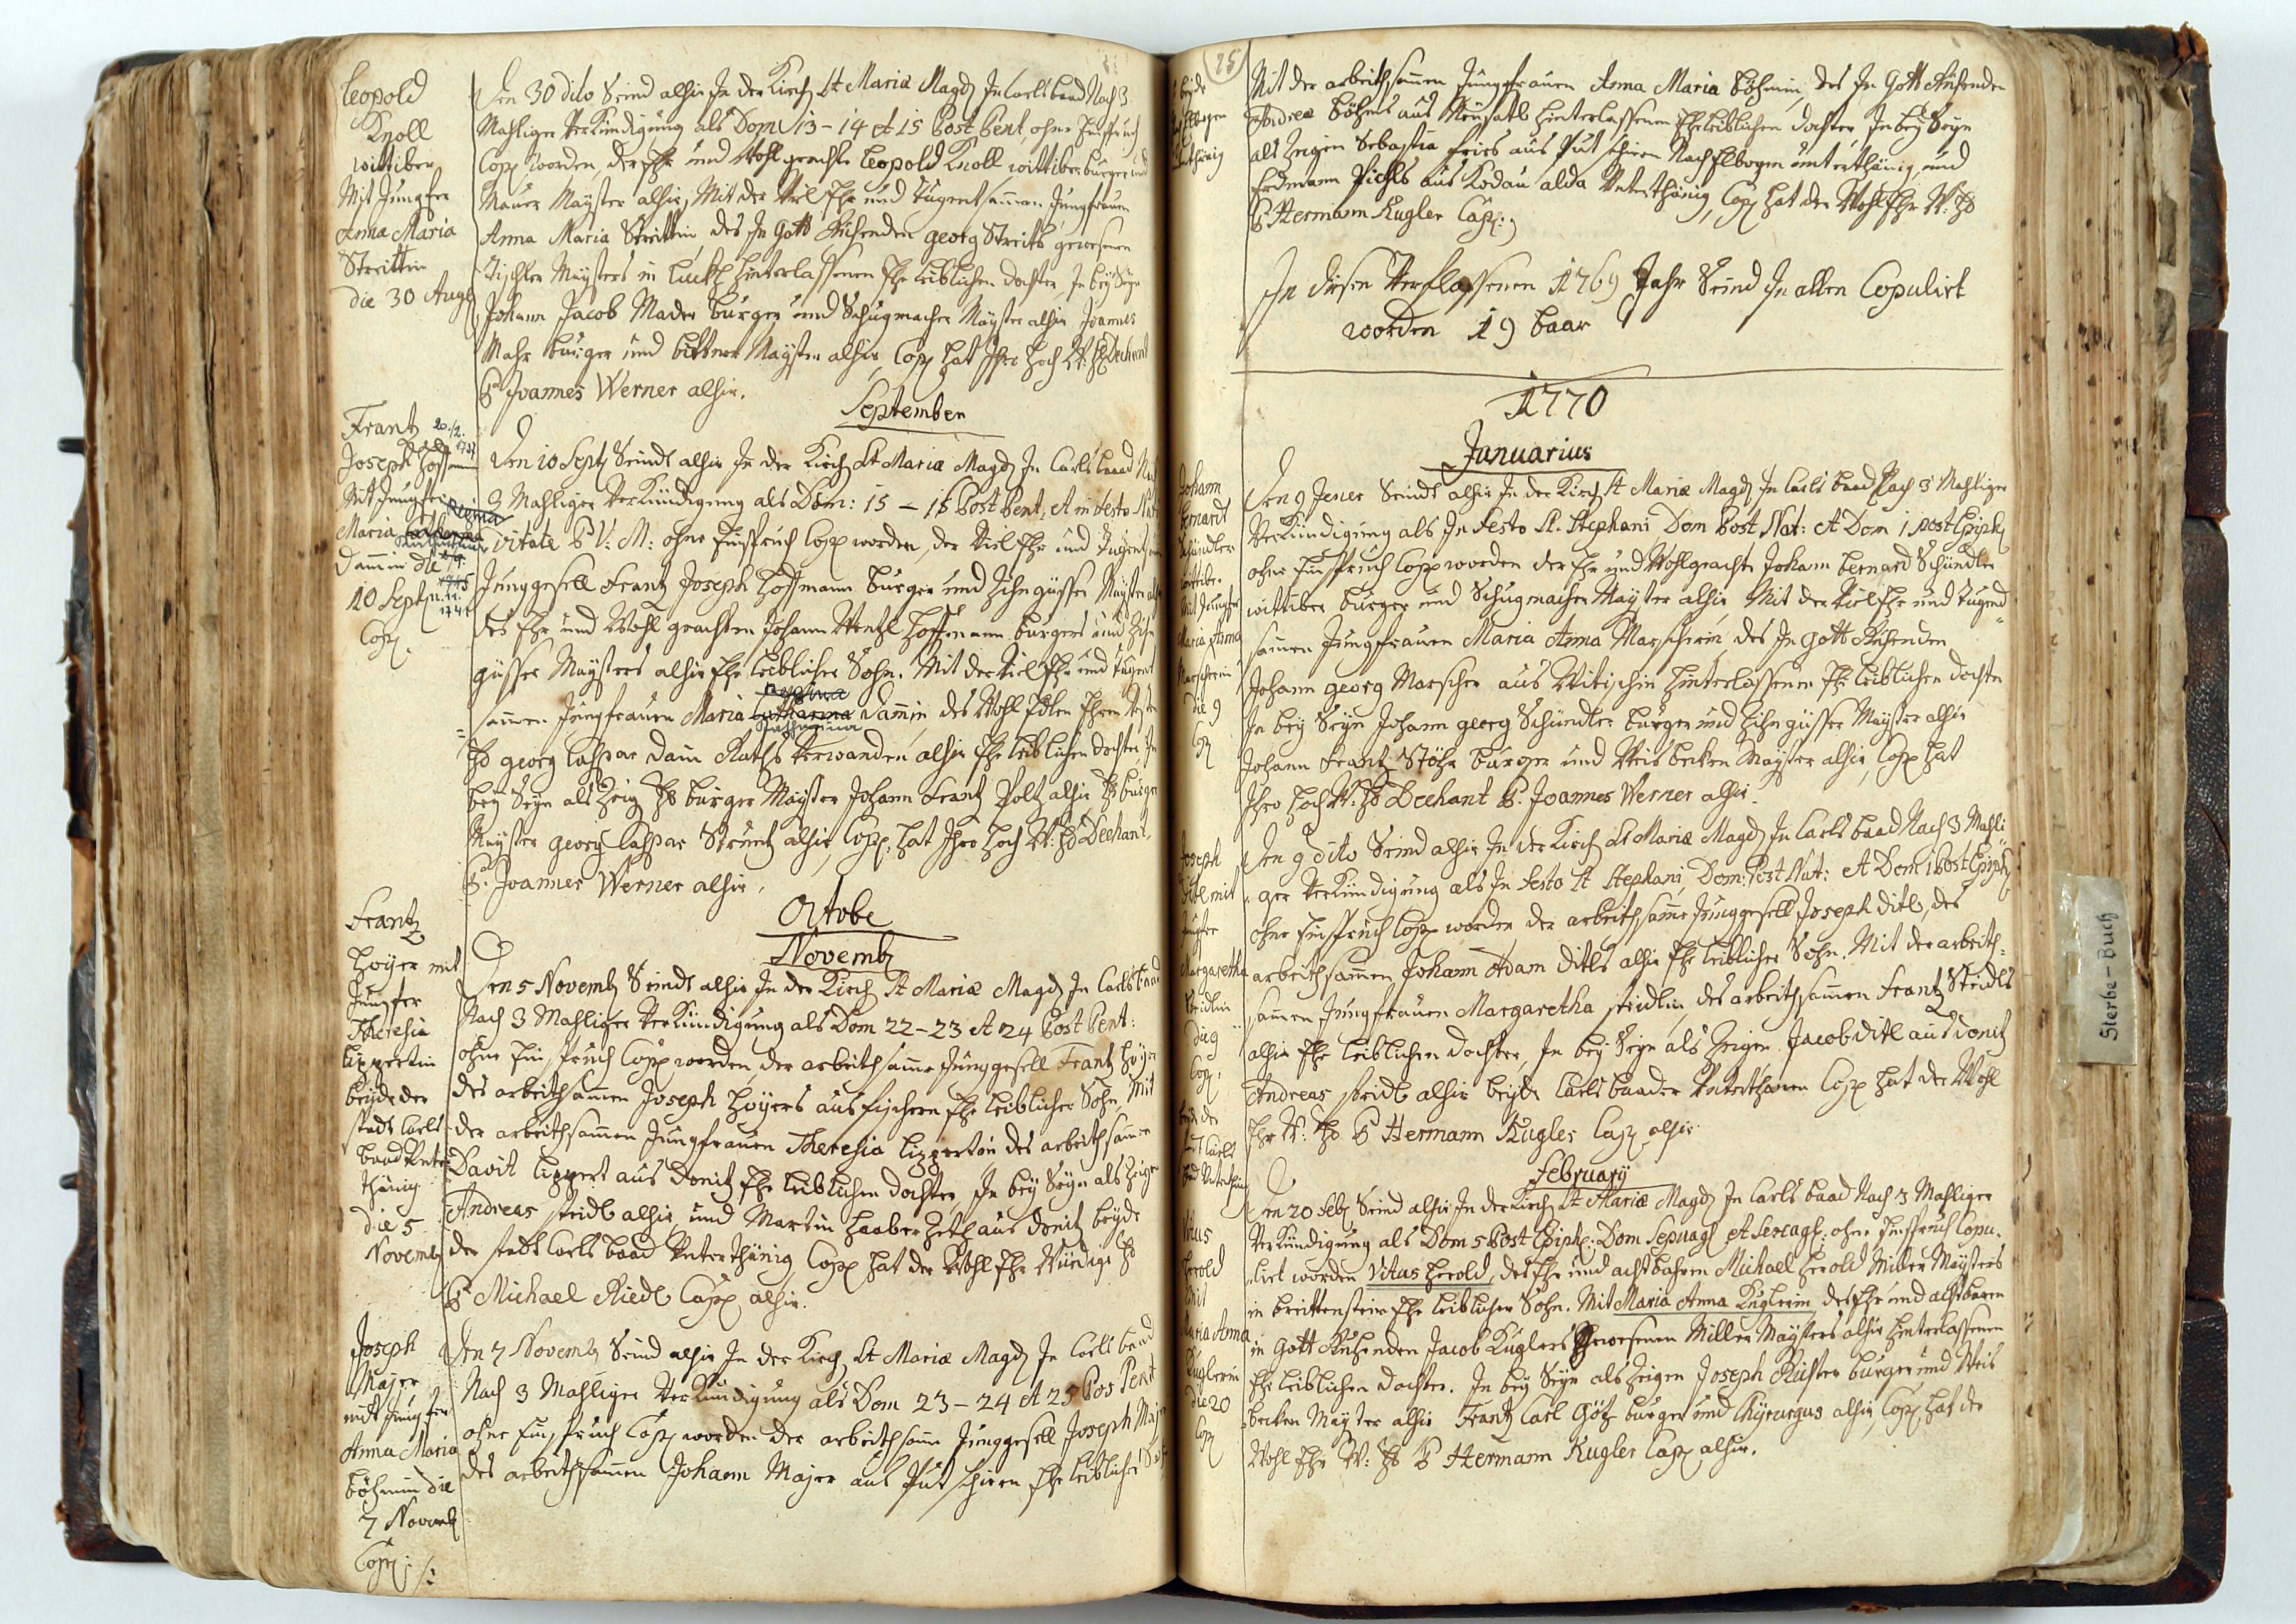 Leopold
Knoll
wittiber
Mit Jungfer
Anna Maria
Streittin
die 30 Aug
Den 30 dito Seind alhir In der Kirch St Mariæ Magd In Carlsbaad Nach 3
Mahliger Verkündigung als Dom 13 - 14 et 15 Post Pent, ohne Einspruch
Cop worden, der Ehr und Wohl geachte Leopold Knoll wittiber burger und
Maurer Mayster alhir, Mit der Viel Ehr und Tugentsamen Jungfrauen
Anna Maria Streittin, des In Gott Ruhenden georg Streits gewesenen
Tischler Maysters in hinterlassenen Ehe leiblichen dochter, In bey Seyn
Johann Jacob Mader burger und Schugmacher Mayster alhir Joannes
Mahr burger und bittner Mayster alhir, Cop hat Ihro Hoch W: H Dechent
P Joannes Werner alhir.
September
Frantz 20./2. 1737
Joseph Hoffmann
Mit Jungfer
Maria Regina Catharina
Damin die
1745
10 Sept 11.11.
1741
Cop
Den 10 Sept Seindt alhir In der Kirch St Mariæ Magd In Carlsbaad Nach
3 Mahliger Verkündigung als Dom: 15 - 16 Post Pent: et in festo Nati
vitate B V: M: ohne Einspruch Cop worden, der Viel Ehr und Tugentsam
Junggesell Frantz Joseph Hoffmann burger und Zihngüsser Mayster alhir
des Ehr und Wohl geachten Johann Wentzl Hoffmann burgers und Zihn
güsser Maysters alhir Ehe leiblicher Sohn. Mit der Viel Ehr und Tugent
samen Jungfrauen Maria Regina Catharina Damin, des Wohl Edlen
Catharina
H georg Caspar Dam Raths Verwanden alhir Ehe leiblichen dochter, In
bey Seyn als Zeig H burger Mayster Johann Frantz Poltz alhir H burger
Mayster georg Caspar Strunz alhir, Cop. hat Ihro Hoch W: H Dechant
P. Joannes Werner alhir,
Octobe
Novemb
Frantz
Hoyer mit
Jungfer
Theresia
Lippertin
beyde der
stadt Carls
baad Unter
thänig
die 5
Novemb
Den 5 Novemb Seindt alhir In der Kirch St Mariæ Magd In Carlsbaad
Nach 3 Mahliger Verkündigung als Dom 22 - 23 et 24 Post Pent:
ohne Einspruch Cop worden, der arbeithsame Junggesell Frantz Hoyer
des arbeithsamen Joseph Hoyers aus fischern Ehe leiblicher Sohn, Mit
der arbeithsamen Jungfrauen Theresia Lippertin des arbeithsamen
Davit Lippert aus Donitz Ehe leiblichen dochter, In bey Seyn als Zeigen
Andreas steidl alhir, und Martin Haaberzetl aus donitz beyde
der stadt Carls baad Unterthänig Cop hat der Wohl Ehr Würdige H
P Michael Riedl Cap alhir.
Joseph
Majer
mit Jungfer
Anna Maria
böhmin die
7 Novemb
Cop:
Den 7 Novemb Seind alhir In der Kirch St Mariæ Magd In Carls baad
Nach 3 Mahliger Verkündigung als Dom 23 - 24 et 25 Pos Pent
ohne Einspruch Cop worden der arbeithsam Junggesell Joseph Majer
des arbeithsamen Johann Majer aus Putschirn Ehe leiblicher Sohn
25
beyde
Elbogen
unterthänig
Mit der arbeithsamen Jungfrauen Anna Maria böhmin, des In Gott Ruhenden
Andreæ böhms aus Neusatl hinterlassenen Ehe leiblichen dochter, In bey Seyn
als Zeigen Sebastia aus Putschirn Nach Elbogen unterthänig und
Erdmann Pichls aus Kodau alda Unterthänig, Cop hat der Wohl Ehr W: H
P Hermann Kugler Cap:
In disen Verflossenen 1769 Jahr Seind In allen Copulirt
worden 19 baar
1770
Januarius
Johann
bernardt
Schündler
wittiber
Mit Jungfer
Maria Anna
Marscherin
die 9
Cop
Den 9 Jener Seindt alhir In der Kirch St Mariæ Magd In Carls baad Nach 3 Mahliger
Verkündigung als In Festo St. Stephani Dom Post Nat: et Dom 1 post Epiph
ohne Einspruch Cop worden der Ehr und Wohl geachte Johann bernard Schündler
wittiber burger und Schugmacher Mayster alhir, Mit der Viel Ehr und Tugend
samen Jungfrauen Maria Anna Marscherin, des In Gott Ruhenden
Johann georg Marscher aus Witischin hinterlassenen Ehe leiblichen dochter
In bey Seyn Johann georg Schündler burger und Zihngüsser Mayster alhir
Johann Frantz Stöhr burger und Weis becken Mayster alhir, Cop hat
Ihro Hoch W: H Dechant P. Joannes Werner alhir.
Joseph
ditl mit
Jungfer
Margaretha
steidlin
die 9
Cop:
beyde der
stadt Carls
baad Unterthän
Den 9 dito Seind alhir In der Kirch St Mariæ Magd In Carls baad Nach 3 Mahli
ger Verkündigung als In Festo St Stephani, Dom: Post Nat: et Dom 1 Post Epiph
ohne Einspruch Cop worden der arbeithsame Junggesell Joseph ditl, des
arbeithsamen Johann Adam ditls alhir Ehe leiblicher Sohn. Mit der arbeith-
samen Jungfrauen Margaretha steidlin, des arbeithsamen Frantz Steidls
alhir Ehe leiblichen dochter, In bey Seyn als Zeigen Jacob ditl aus donitz
Andreas steidl alhir beyde Carlsbaader Unterthanen Cop hat der Wohl
Ehr W: H P Hermann Kugler Cap alhir
February
Vitus
Herold
Mit
Maria Anna
Kuglerin
die 20
Cop
Den 20 Feb Seind alhir In der Kirch St Mariæ Magd In Carls baad Nach 3 Mahliger
Verkündigung als Dom 5 Post Epiph: Dom Sepuag et Sexag: ohne Einspruch Copu-
lirt worden Vitus Herold, des Ehr und achtbahren Michael Herold Miller Maysters
in breittenstein Ehe leiblicher Sohn. Mit Maria Anna Kuglerin des Ehr und achtbaren
in Gott Ruhenden Jacob Kuglers gewesenen Miller Maysters alhir hinterlassenen
Ehe leiblichen dochter. In bey Seyn als Zeigen Joseph Richter burger und Weis
becken Mayster alhir Frantz Carl Götz burger und Chyrurgus alhir, Cop hat der
Wohl Ehr W: H P Hermann Kugler Cap alhir.
Sterbe-Buch